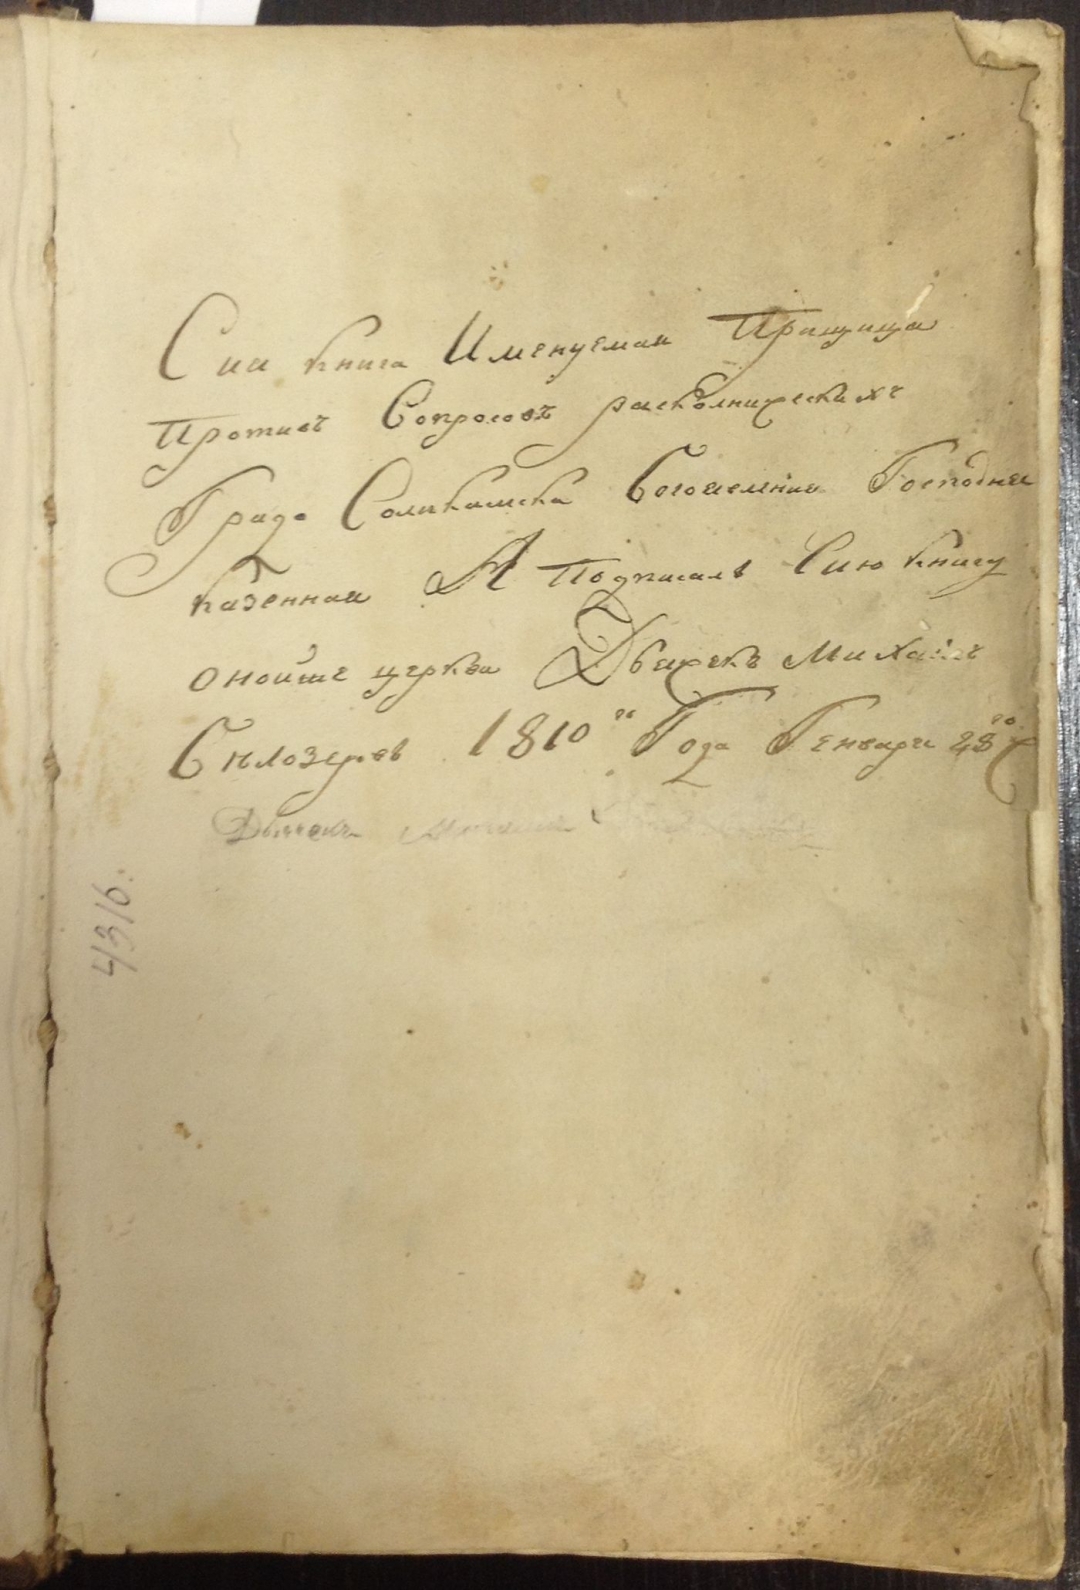 Сия книга Именуемая Пращица
Противъ Вопросовъ раскольническихъ
Града Соликамска Богоявления Господня
казенная А Подписалъ Сию книгу
оной же церкви Дьячекъ Михаилъ
Белозеровъ 1810го Года Генваря 28го
Дьячекъ
4316.